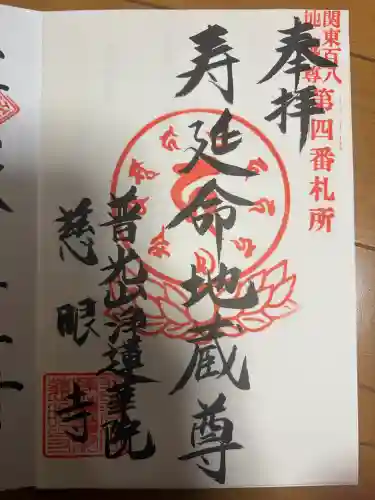 関東百八
地蔵尊
第四番札所
奉拝
寿延命地蔵尊
普光山浄蓮華院
慈眼寺